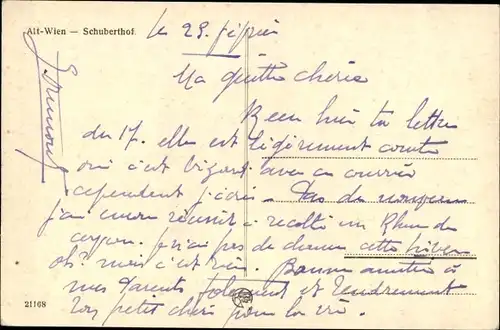 Alt-Wien — Schuberthof.
le 25 février
Ma petite chérie
Reçu hier ta lettre
du 17. elle est légèrement courte
oui c'est bizard avec ce courrier
cependant j'écris. Pas de nouveau
j'ai encore réussi à récolté un Rhume de
je n'ai pas de chance cette hiver
mais c'est rien. Bonne amitié à
mes Parents follement et tendrement
ton petit chéri pour la vie.
21168